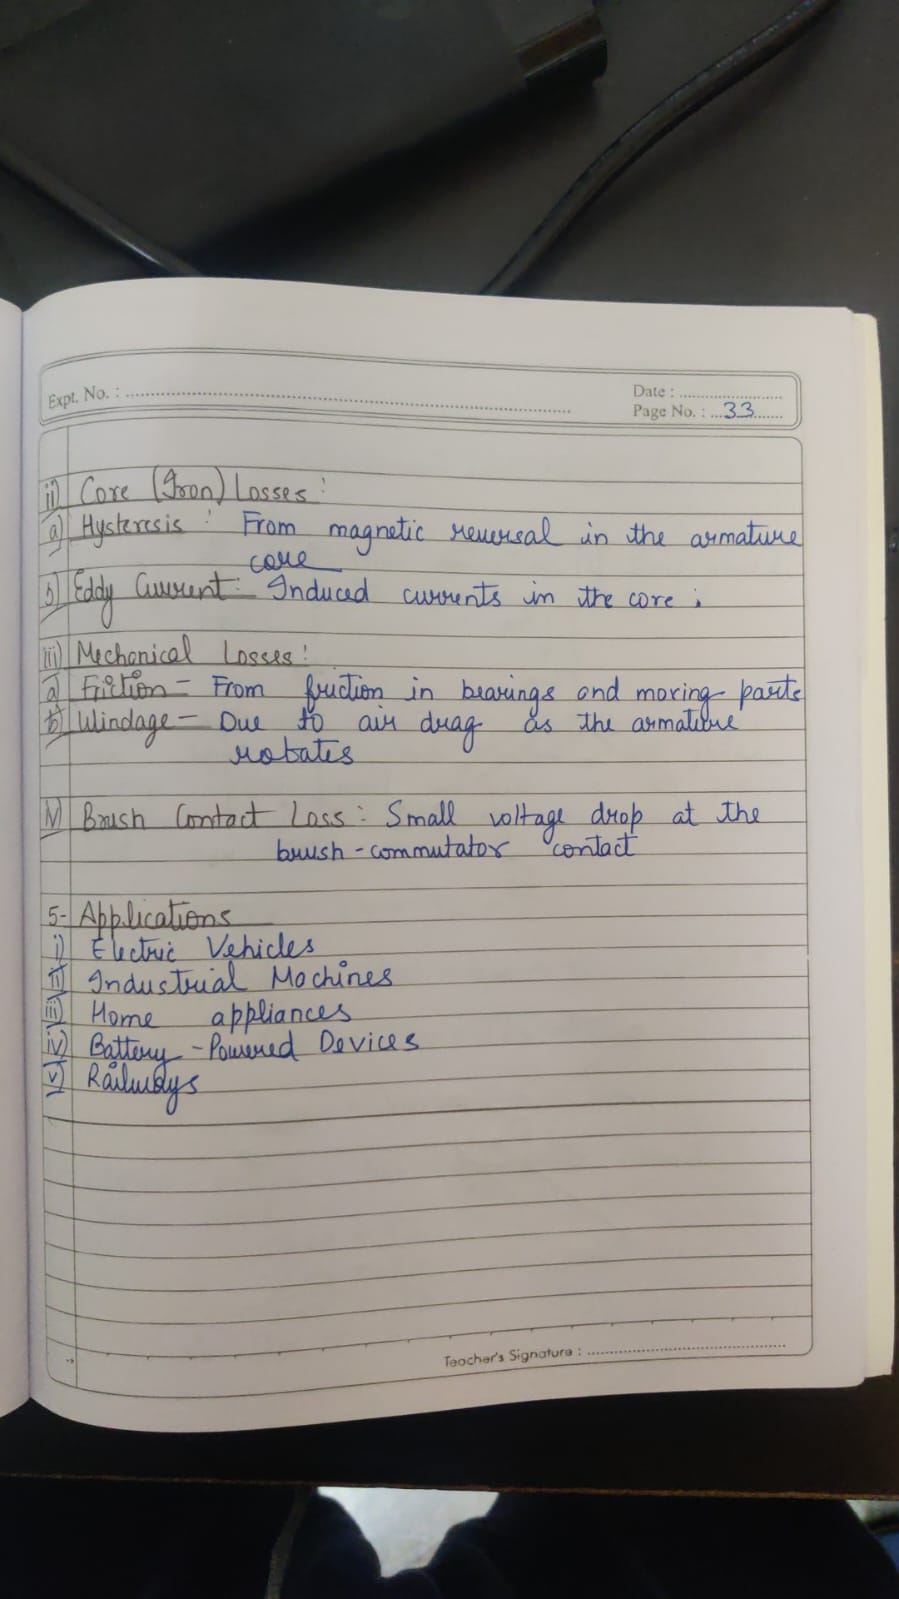 Expt. No. :
Date :
Page No. : 33
ii) Core (Iron) Losses :
a) Hysteresis : From magnetic reversal in the armature
core
b) Eddy Current :- Induced currents in the core ;
iii) Mechanical Losses :
a) Friction - From friction in bearings and moving parts
b) Windage - Due to air drag as the armature
rotates
iv) Brush Contact Loss : Small voltage drop at the
brush-commutator contact
5- Applications
i) Electric Vehicles
ii) Industrial Machines
iii) Home appliances
iv) Battery-Powered Devices
v) Railways
Teacher's Signature :